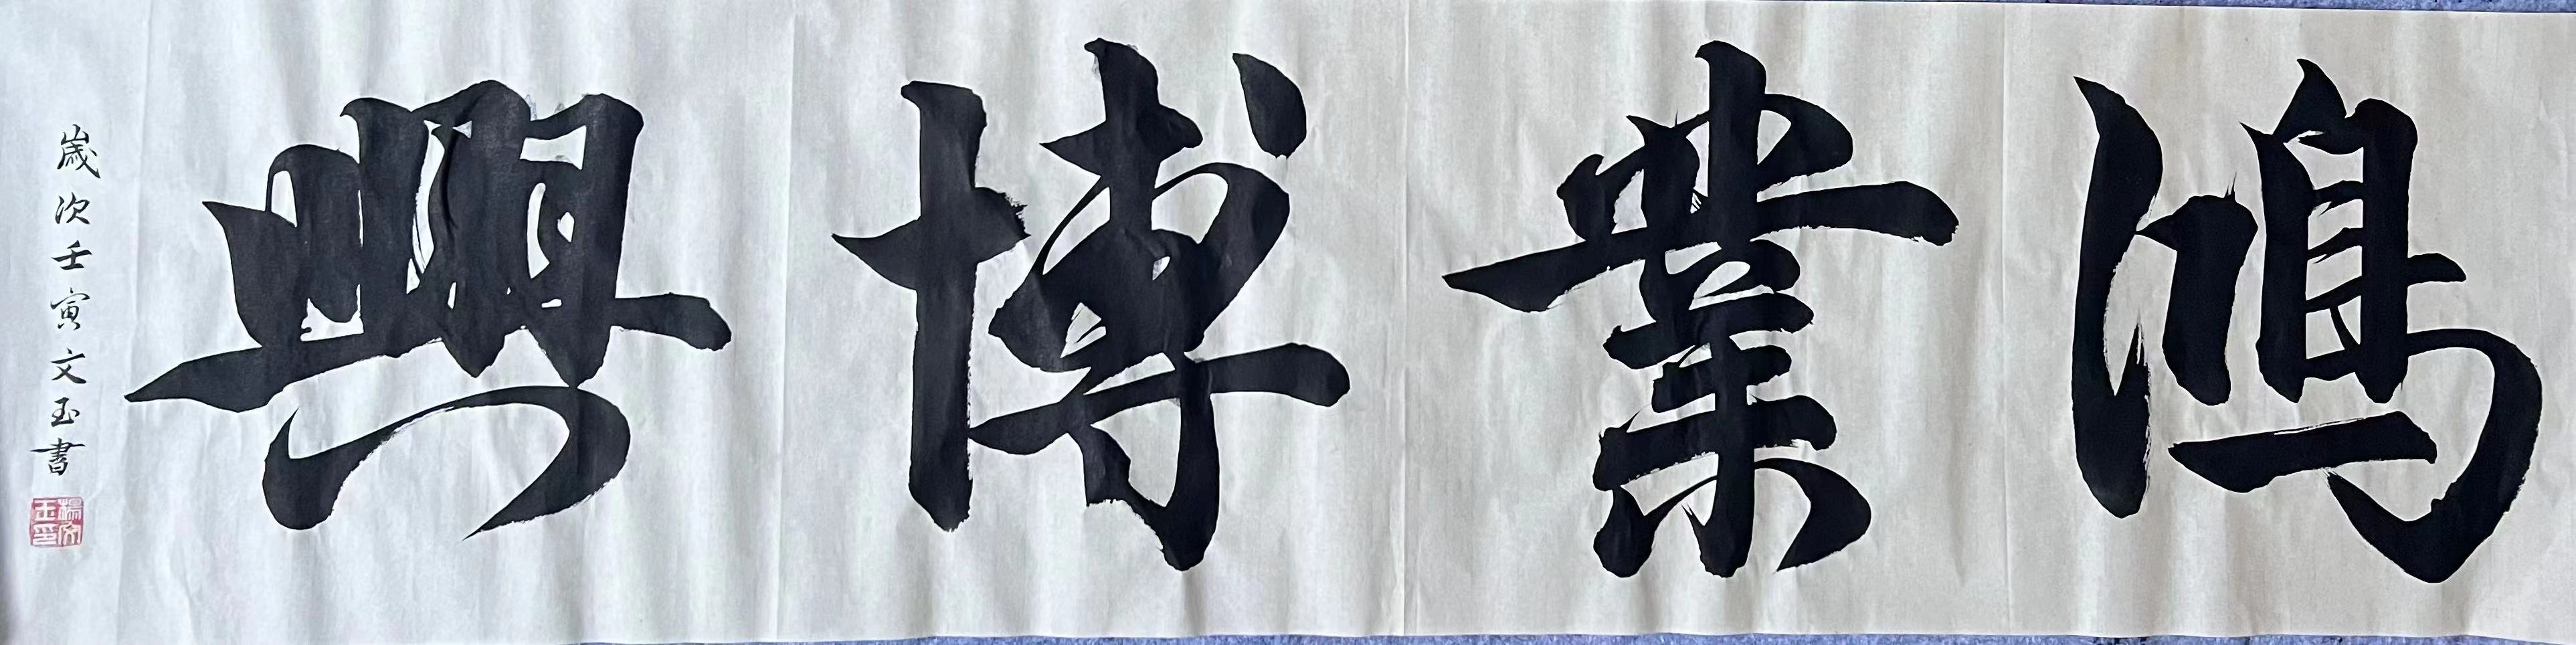 鴻業博興
歲次壬寅文玉書
楊文玉印